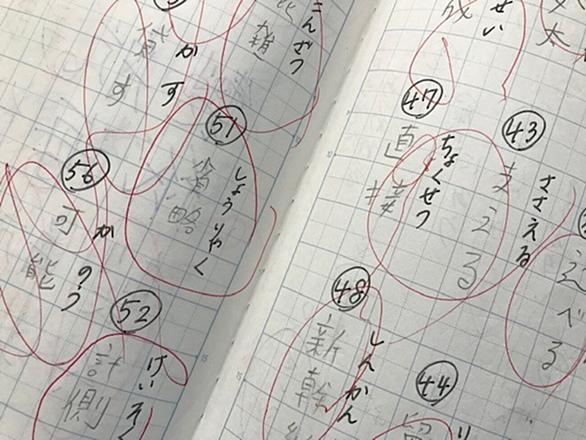 太
せい
43
ささえる
支える
べる
47
ちょくせつ
直接
44
48
しんかん
新幹
こんざつ
雑
かす
貸す
51
しょうりゃく
省略
52
けいそく
計側
56
かのう
可能